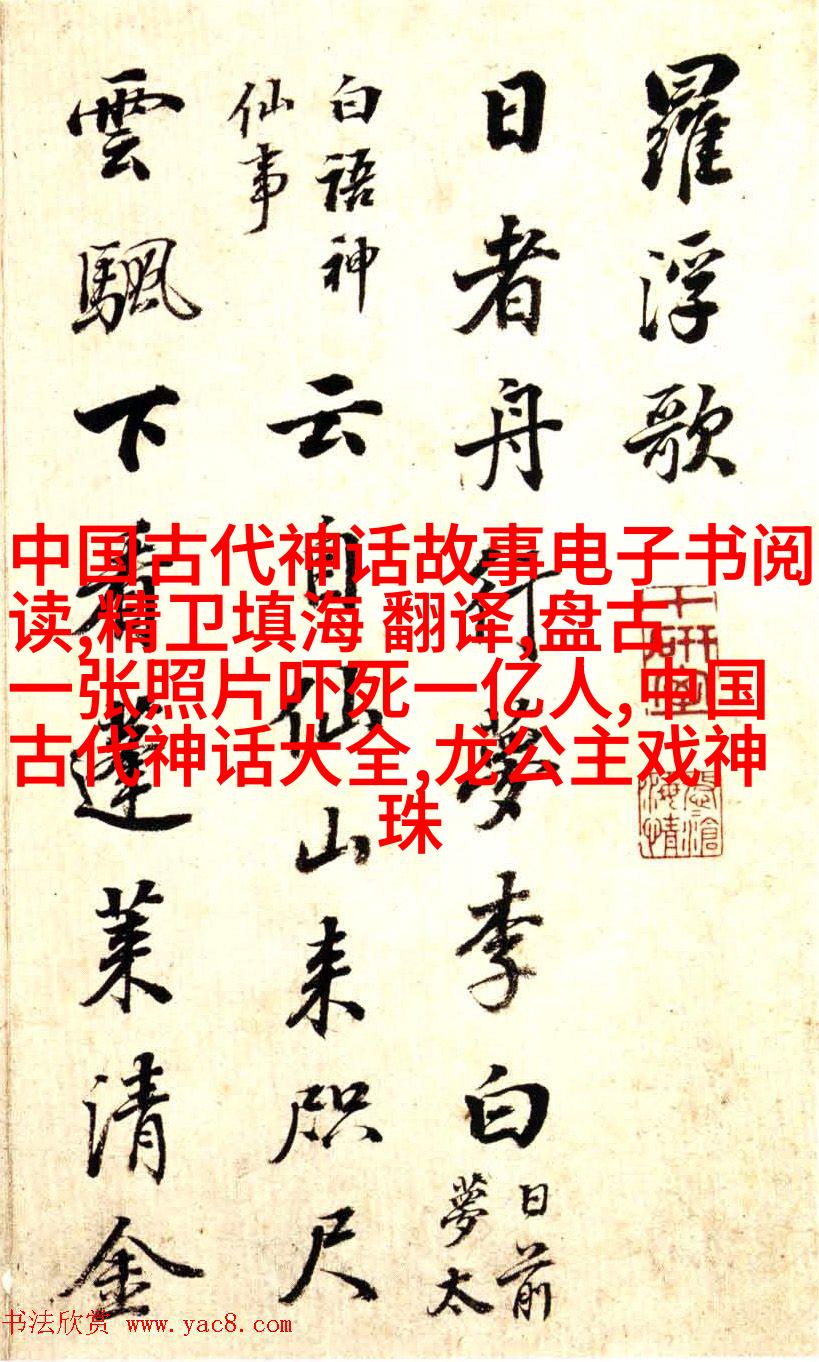 羅浮歌
日者舟行夢李白
日前
夢太
白語神
仙事
云自仙山来咫尺
雲颿下看蓬萊清金
中国古代神话故事电子书阅
读,精卫填海 翻译,盘古
一张照片吓死一亿人,中国
古代神话大全,龙公主戏神
珠
书法欣赏 www.yac8.com